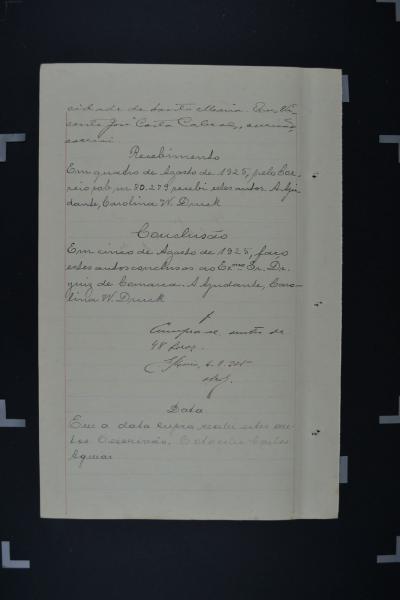 cidade de Santa Maria. Eu, Vi-
cente José Costa Cabral, escrivão
escrevi.
Recebimento
Em quatro de Agosto de 1925, pelo Cor-
reio sob nr 80.279 recebi estes autos. A Aju-
dante, Carolina W. Druck
Conclusão
Em cinco de Agosto de 1925, faço
estes autos conclusos ao Exmo Sr. Dr.
Juiz de Comarca. A Ajudante, Caro-
lina W. Druck
Cumpra-se dentro de
48 horas.
Data
Em a data supra recebi estes au-
tos. O escrivão,
Aguiar